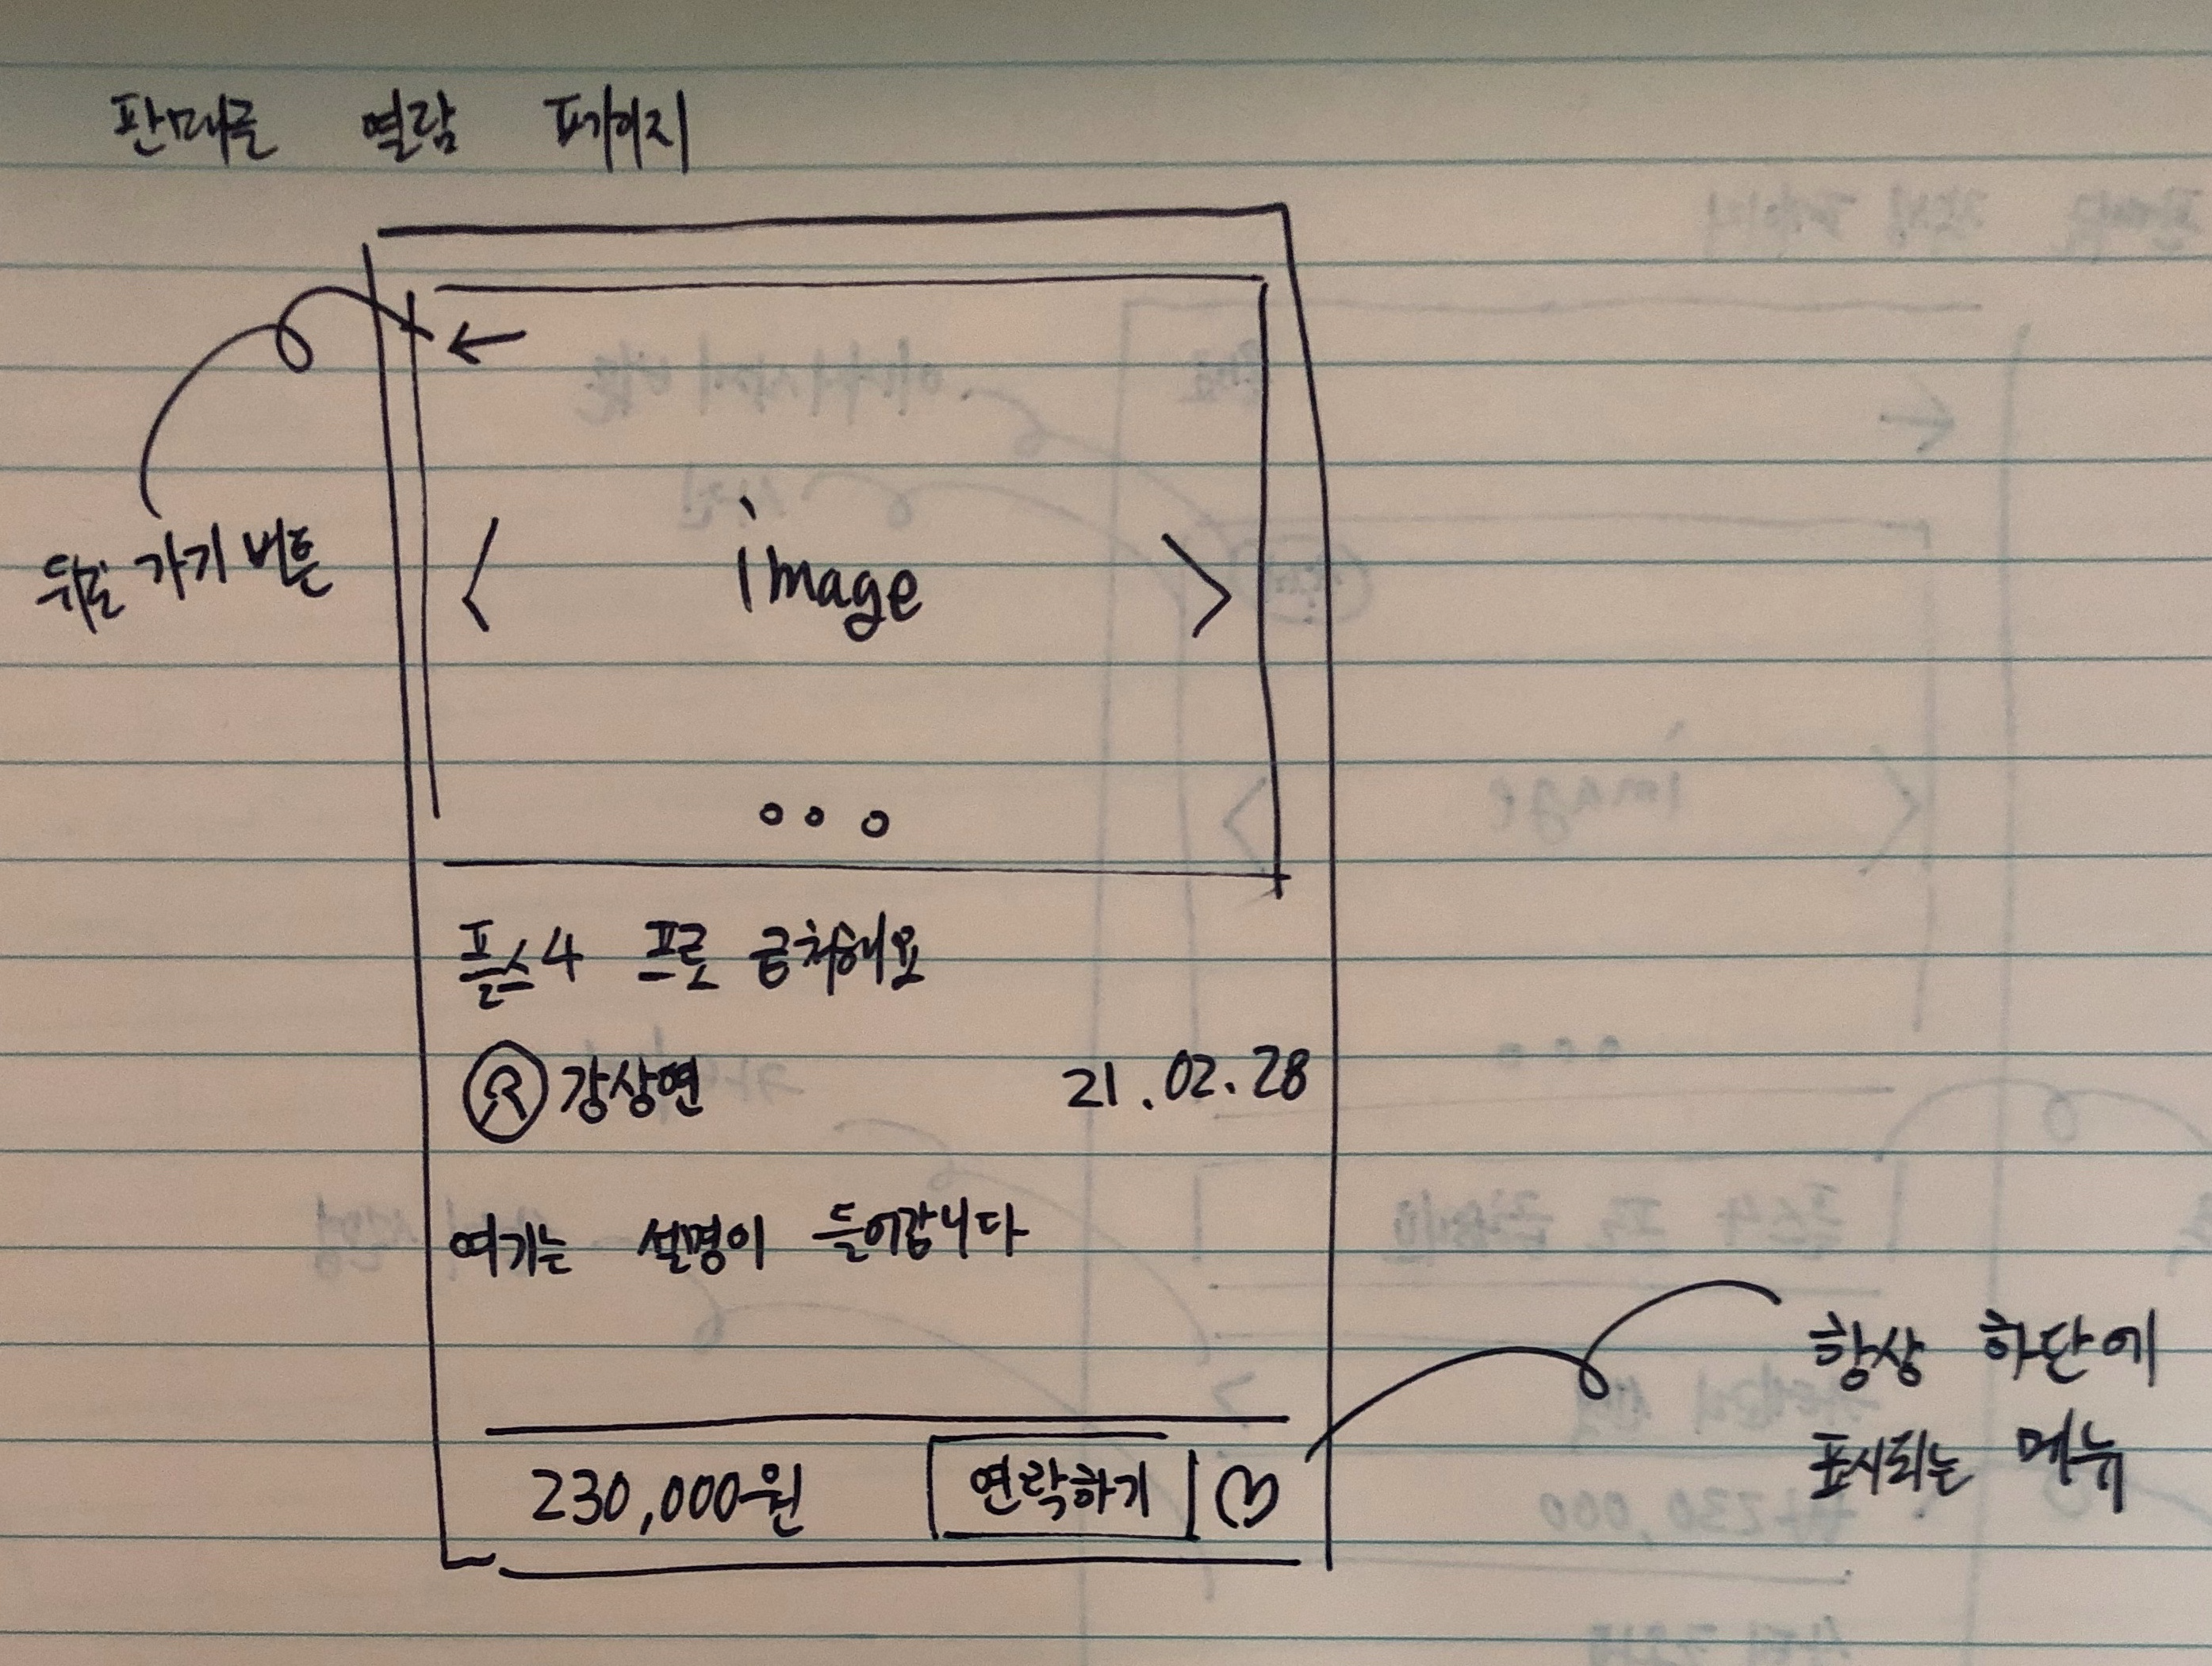 판매글 열람 페이지
←
뒤로 가기 버튼
< image >
플스4 프로 급처해요
강상연 21.02.28
여기는 설명이 들어갑니다
항상 하단에
표시되는 메뉴
230,000원 연락하기